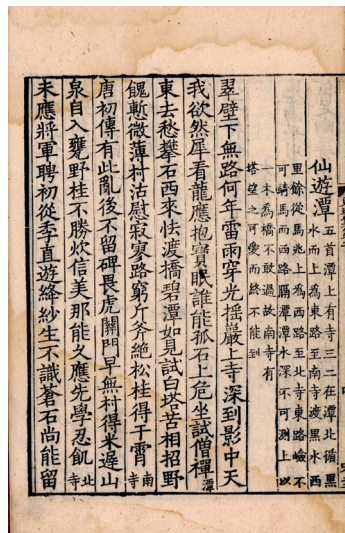 仙遊潭
五首潭上有寺三二在潭北循黑
水而上為東路至南寺渡黑水西
里餘從馬北上為西路至北寺東路嶮不
可騎馬而西路隔潭潭水深不可測上以
一木為橋不敢過故南寺有
塔望之可愛而終不能到
翠壁下無路何年雷雨穿光搖巖上寺深到影中天
我欲然犀看龍應抱寶眠誰能孤石上危坐試僧禪潭
東去愁攀石西來怯渡橋碧潭如見試白塔苦相招野
餽慙微薄村沽慰寂寥路窮斤斧絶松桂得干霄南寺
唐初傳有此亂後不留碑畏虎關門早無村得米遲山
泉自入甕野桂不勝炊信美那能久應先學忍飢北寺
未應將軍聘初從季直遊絳紗生不識蒼石尚能留